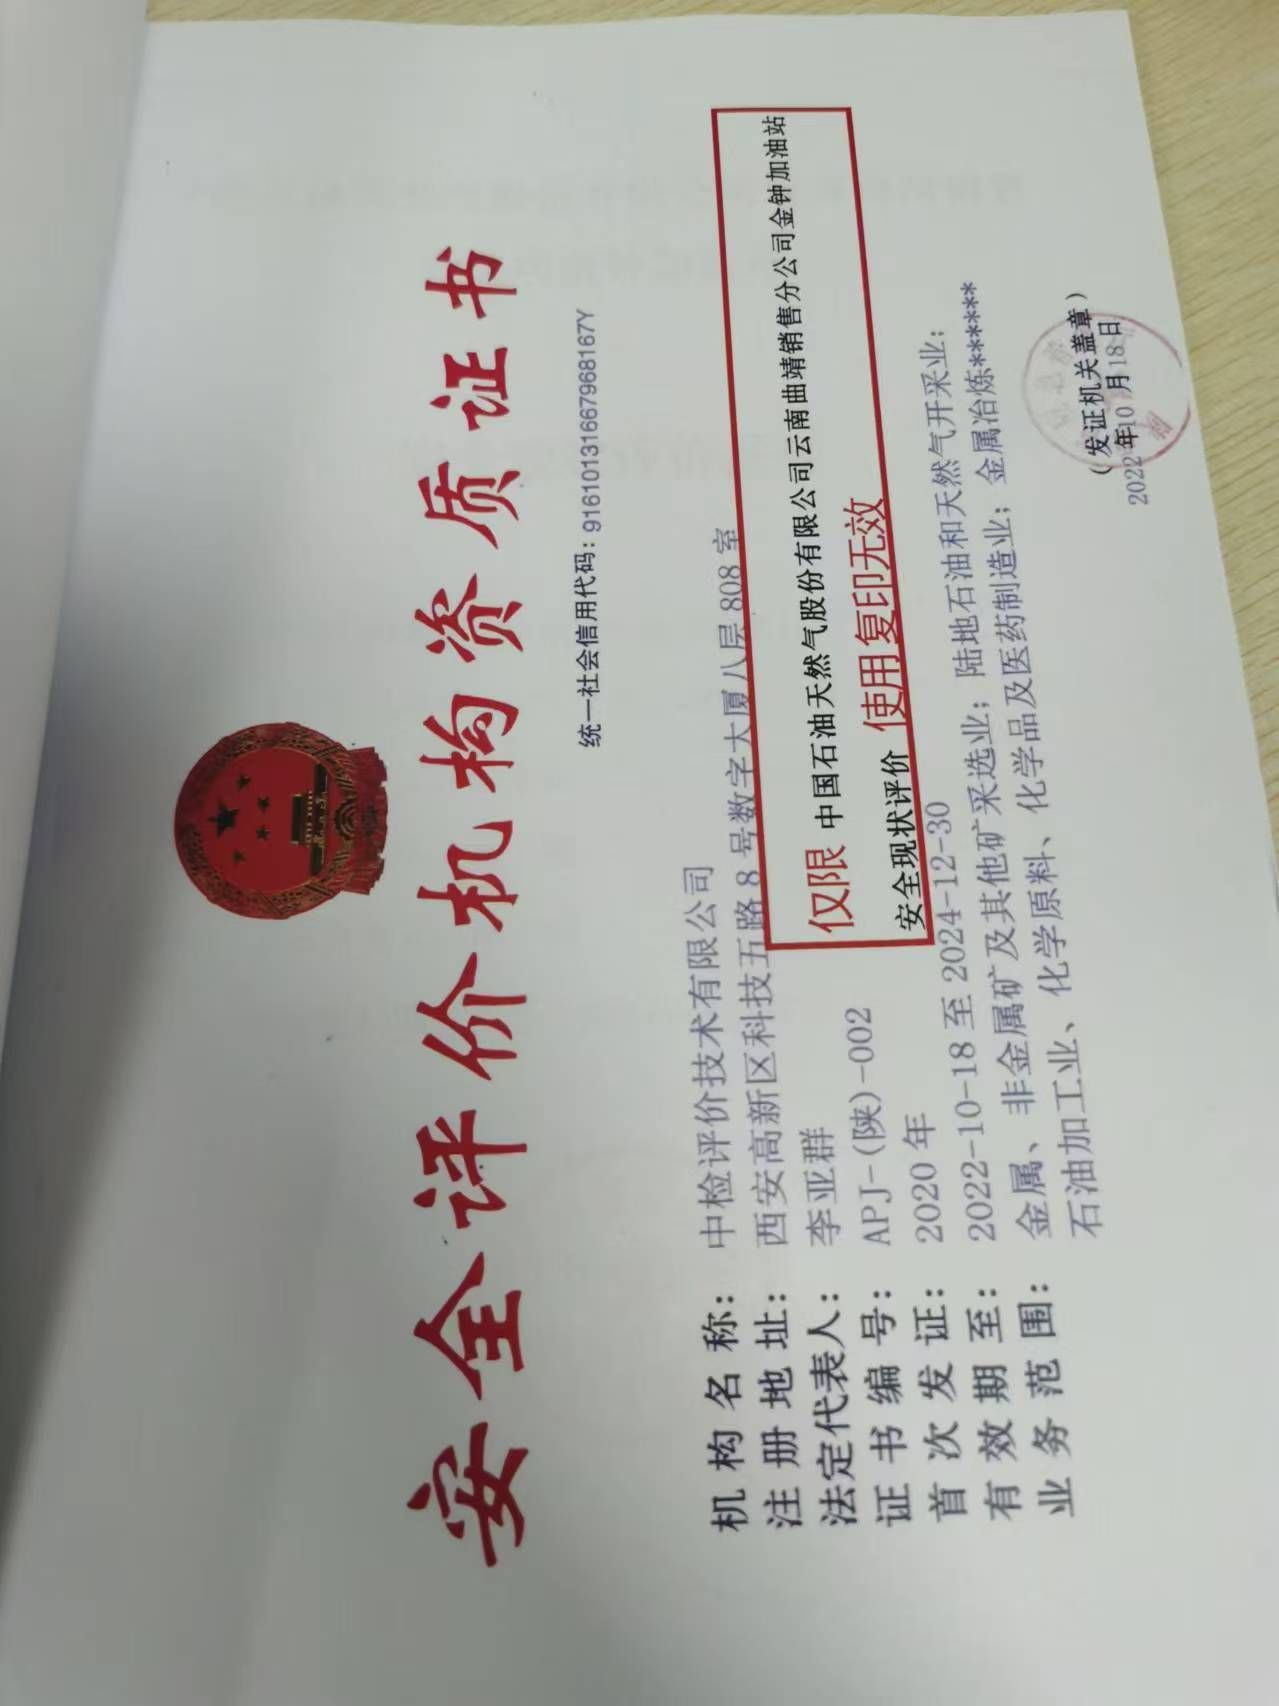 安全评价机构资质证书
统一社会信用代码：91610131667968167Y
机构名称：中检评价技术有限公司
注册地址：西安高新区科技五路8号数字大厦八层808室
法定代表人：李亚群
证书编号：APJ-(陕)-002
首次发证：2020年
有效期至：2022-10-18至2024-12-30
业务范围：金属、非金属矿及其他矿采选业；陆地石油和天然气开采业；
石油加工业、化学原料、化学品及医药制造业；金属冶炼******
仅限 中国石油天然气股份有限公司云南曲靖销售分公司金钟加油站
安全现状评价 使用复印无效
（发证机关盖章）
2022年10月18日